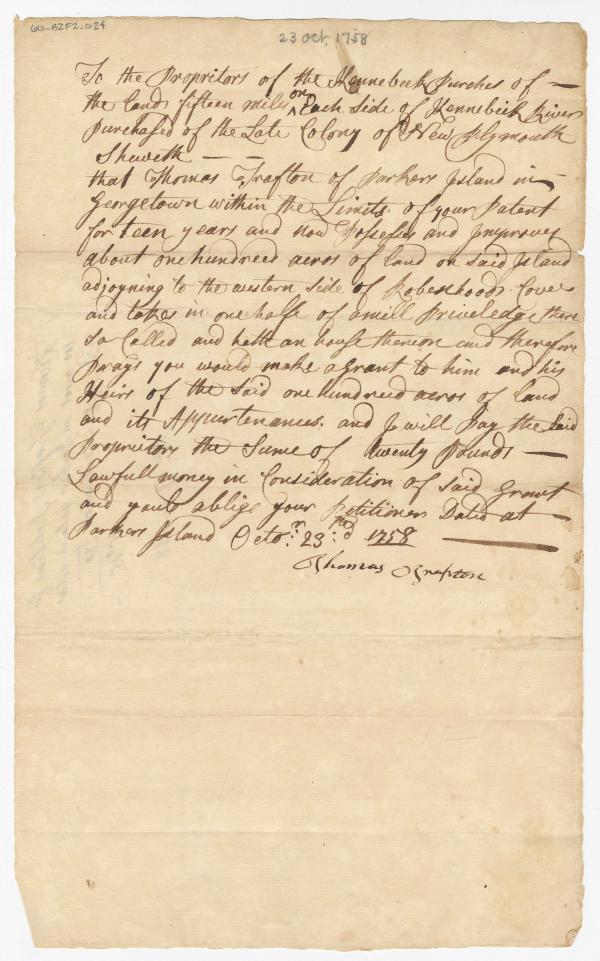 60-B2F2-024
23 Oct. 1758
To the Propritors of the Kennebeck Purches of —
the lands fifteen miles on Each side of Kennebeck River
Purchased of the Late Colony of New Plymouth
Sheweth —
that Thomas Trafton of Parkers Island in
Georgetown within the Limits of your Patent
for teen years and now Possesses and Improves
about one hundred acros of land on said Island
adjoyning to the western side of Robenhoods Cove
and takes in one halfe of a mill Priveledge there
so Called and hath an house thereon and therefore
Prays you would make a grant to him and his
Heirs of the said one hundred acros of land
and its Appurtenances. and I will Pay the said
Propritors the Sume of twenty Pounds —
Lawfull money in Consideration of said Grant
and youl ablige your Petitioner Dated at —
Parkers Island Octor. 23d 1758 —
Thomas Trafton